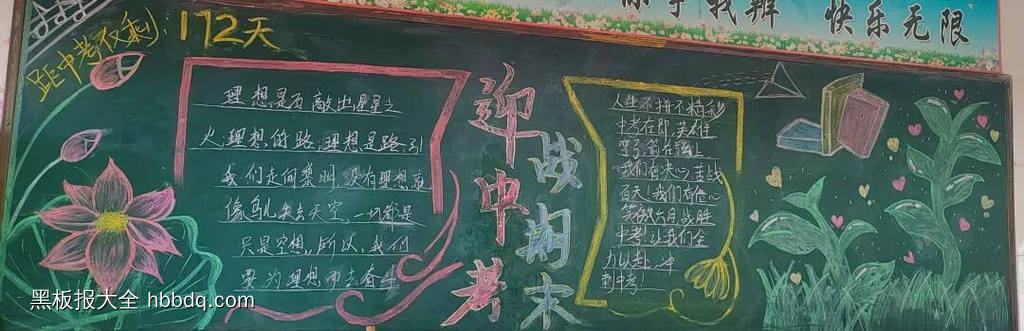 你争我辩 快乐无限
距中考仅剩:172天
理想是石敲出星星之
火,理想的路,理想是路,引
我们走向黎明,没有理想就
像鸟儿失去天空,一切都是
只是空想,所以,我们
要为理想而去奋斗
迎中考
战期末
人生不拼不精彩
中考在即,英雄
我们有决心苦战
百天!我们有信心
战胜
中考!让我们全
力以赴,冲
刺中考!
黑板报大全 hbbdq.com